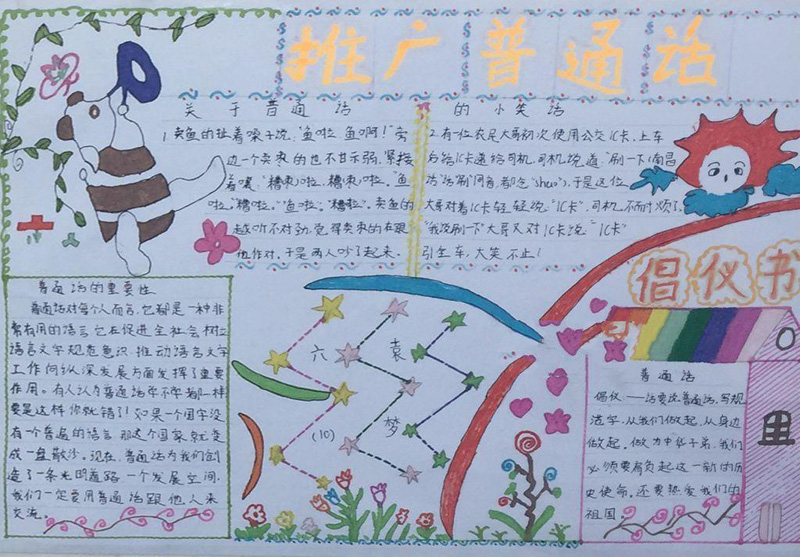 推广普通话
关于普通话的小笑话
1.卖鱼的扯着嗓子说,"鱼啦 鱼啊!"旁
边一个卖枣的也不甘示弱,紧接
着嚷:"糟枣啦,糟枣啦。"鱼
啦。"糟啦。"鱼啦,"糟啦"。卖鱼的
越听不对劲,觉得卖枣的在跟
他作对。于是两人吵了起来。
2.有位农民大哥初次使用公交IC卡,上车
后给IC卡递给司机,司机说道"刷一下(南昌
话"刷"同音,都吃"shuo"),于是这位
大哥对着IC卡轻轻说"IC卡",司机不耐烦了,
"我说刷一下"大哥又对IC卡说"IC卡"
引全车,大笑不止!
普通话的重要性
普通话对每个人而言,它都是一种非
常有用的语言它在促进全社会树立
语言文字规范意识 推动语言文字
工作向纵深发展方面发挥了重要
作用。有人认为普通话学不学都一样
要是这样你就错了!如果一个国家没
有一个普遍的语言 那这个国家就是
成一盘散沙。现在,普通话为我们创
造了一条光明道路 一个发展空间,
我们一定要用普通话跟他人来
交流。
六
(10)
袁
梦
倡仪书
普通话
倡仪——话要说普通话,写规
范字,从我们做起,从身边
做起。做为中华子弟,我们
必须要肩负起这一新的历
史使命。还要热爱我们的
祖国。